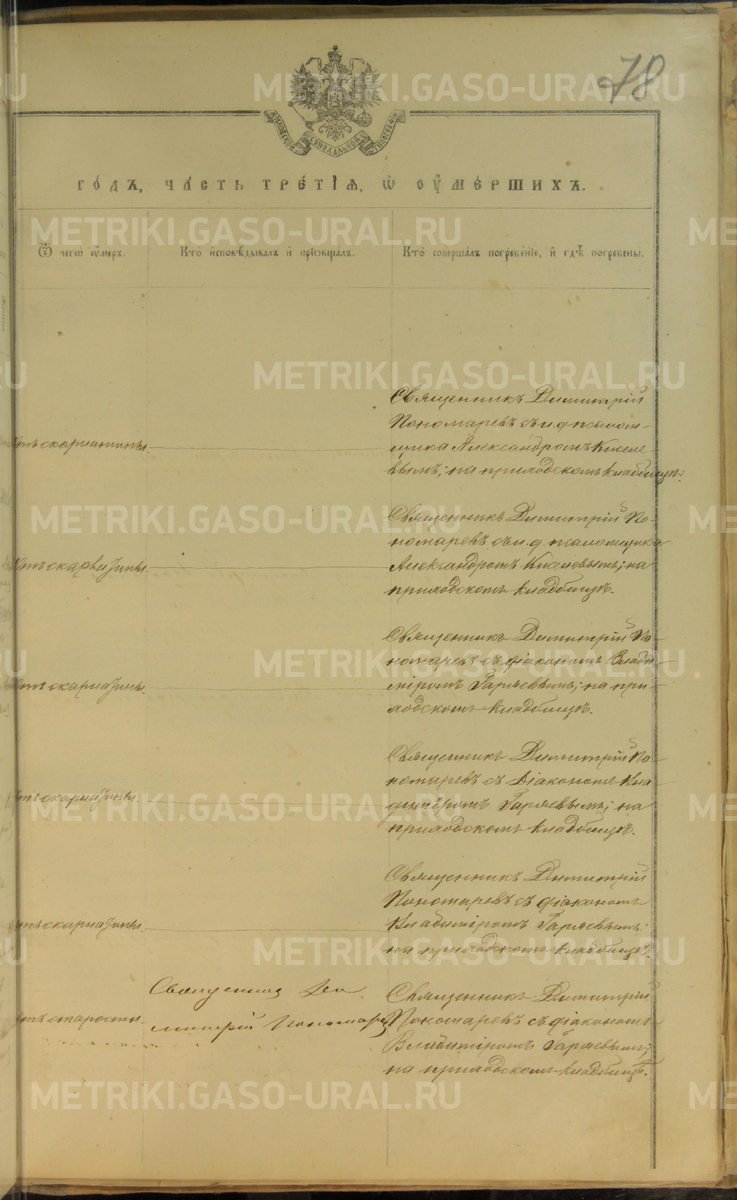 78
МОСКОВСКОЙ СѴНОДАЛЬНОЙ ТИПОГРАФІИ
го́дъ, ча́сть тре́тїѧ, ѡ҆ ᲂу҆ме́ршихъ.
Ѿ чегѡ̀ ᲂу҆́меръ.
Кто̀ и҆сповѣ́дывалъ и҆ прїѡбща́лъ.
Кто̀ соверша́лъ погребе́нїе, и҆ гдѣ̀ погребены̀.
Отъ скарлатины
Священникъ Димитрій
Пономаревъ съ и. д. псалом-
щика Александромъ Киселе-
вымъ; на приходскомъ кладбищѣ.
Отъ скарлатины
Священникъ Димитрій По-
номаревъ съ и. д. псаломщика
Александромъ Киселевымъ; на
приходскомъ кладбищѣ.
Отъ скарлатины
Священникъ Димитрій По-
номаревъ съ діакономъ Влади-
міромъ Гаряевымъ; на при-
ходскомъ кладбищѣ.
Отъ скарлатины
Священникъ Димитрій По-
номаревъ съ діакономъ Вла-
диміромъ Гаряевымъ; на
приходскомъ кладбищѣ.
Отъ скарлатины
Священникъ Димитрій
Пономаревъ съ діакономъ
Владиміромъ Гаряевымъ;
на приходскомъ кладбищѣ.
Отъ старости
Священникъ Ди-
митрій Пономаревъ
Священникъ Димитрій
Пономаревъ съ діакономъ
Владиміромъ Гаряевымъ;
на приходскомъ кладбищѣ.
METRIKI.GASO-URAL.RU